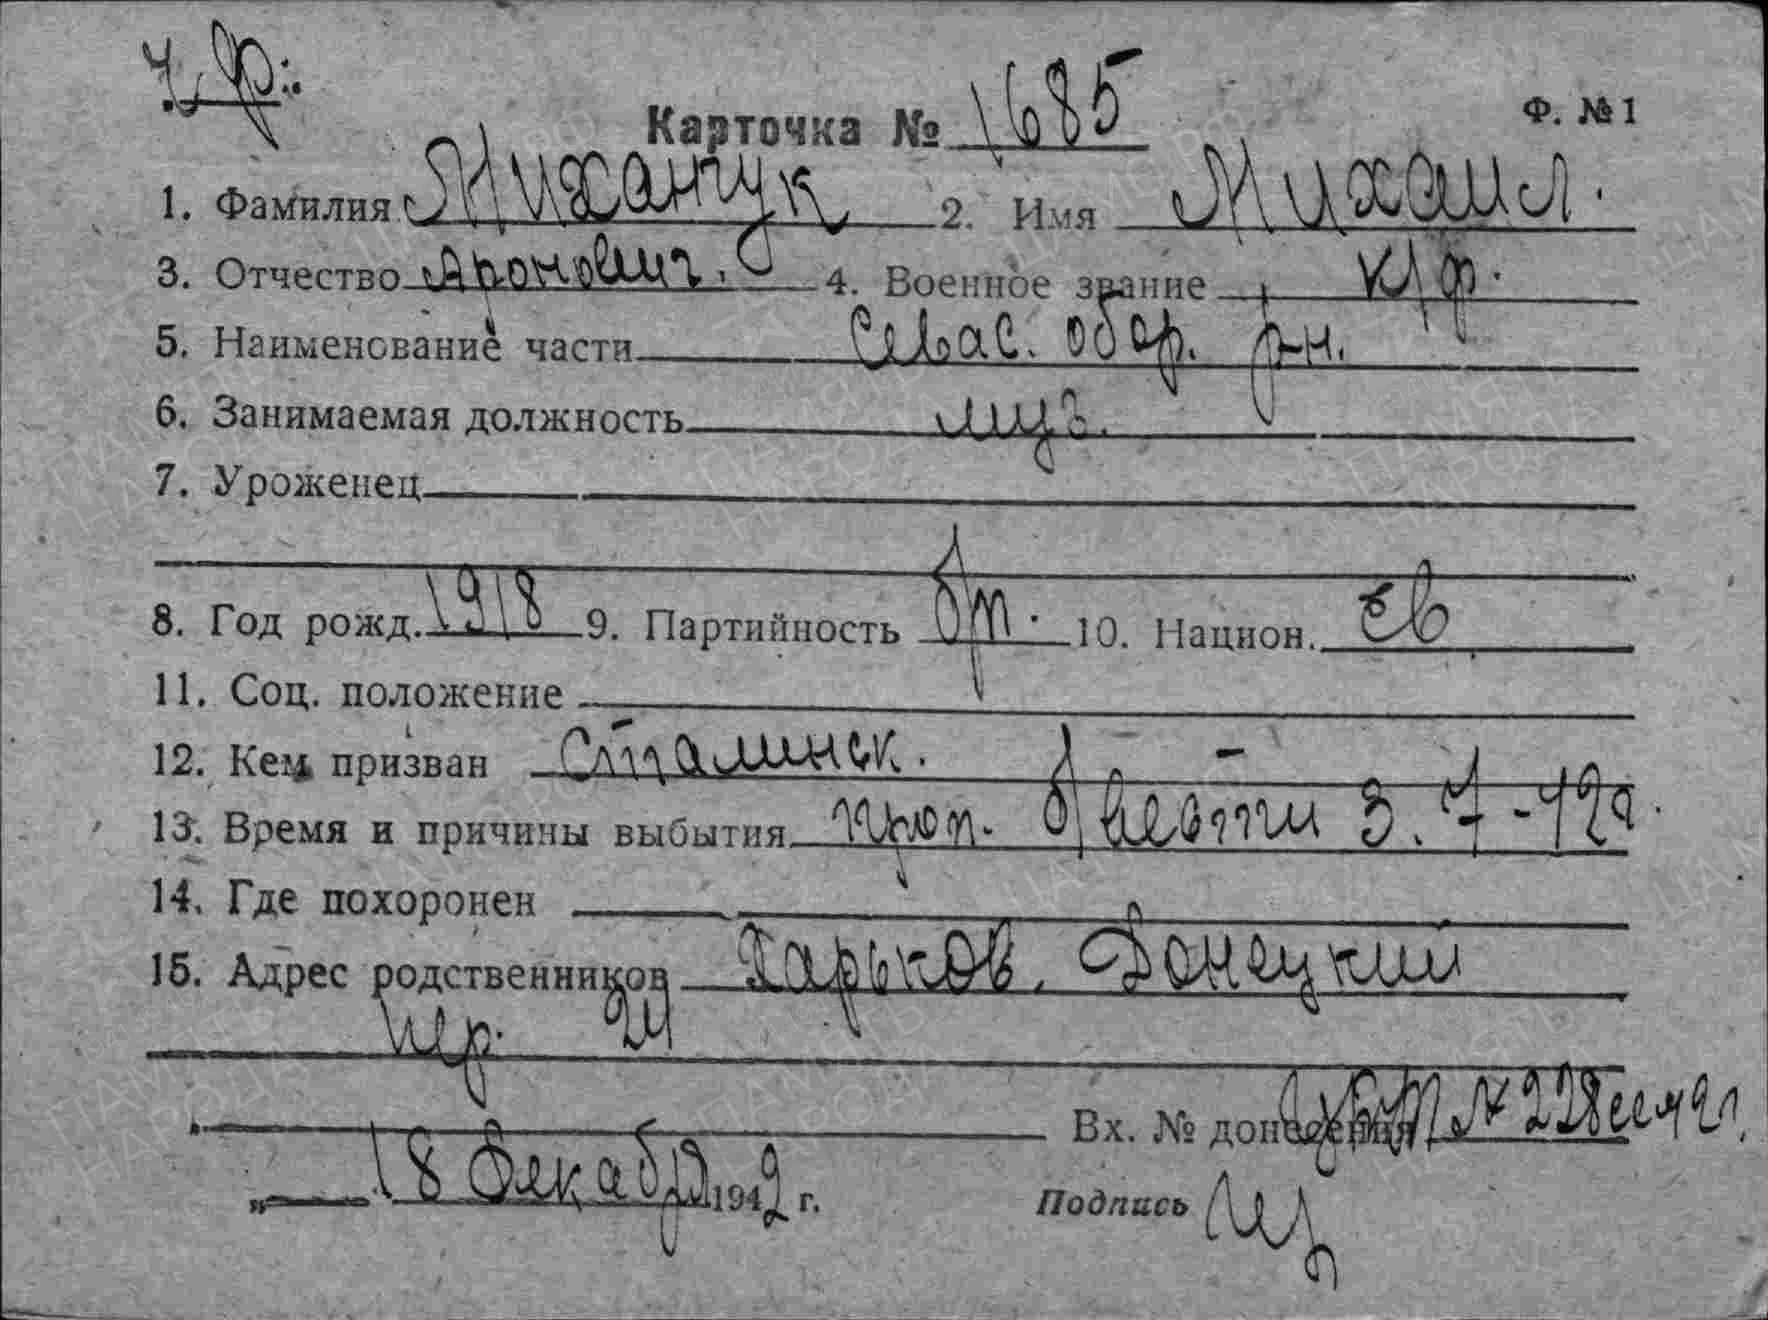 Ч. Ф.
Карточка № 1685 Ф. № 1
1. Фамилия Миханчук 2. Имя Михаил.
3. Отчество Аронович. 4. Военное звание к/ф.
5. Наименование части Севас. обор. р-н.
6. Занимаемая должность муз.
7. Уроженец
8. Год рожд. 1918 9. Партийность б/п. 10. Национ. ев
11. Соц. положение
12. Кем призван Сталинск.
13. Время и причины выбытия проп. б/вести 3.7-42г.
14. Где похоронен
15. Адрес родственников Харьков. Донецкий
пер. 2
Вх. № донесения № 228
„ 18 декабря 1942 г. Подпись